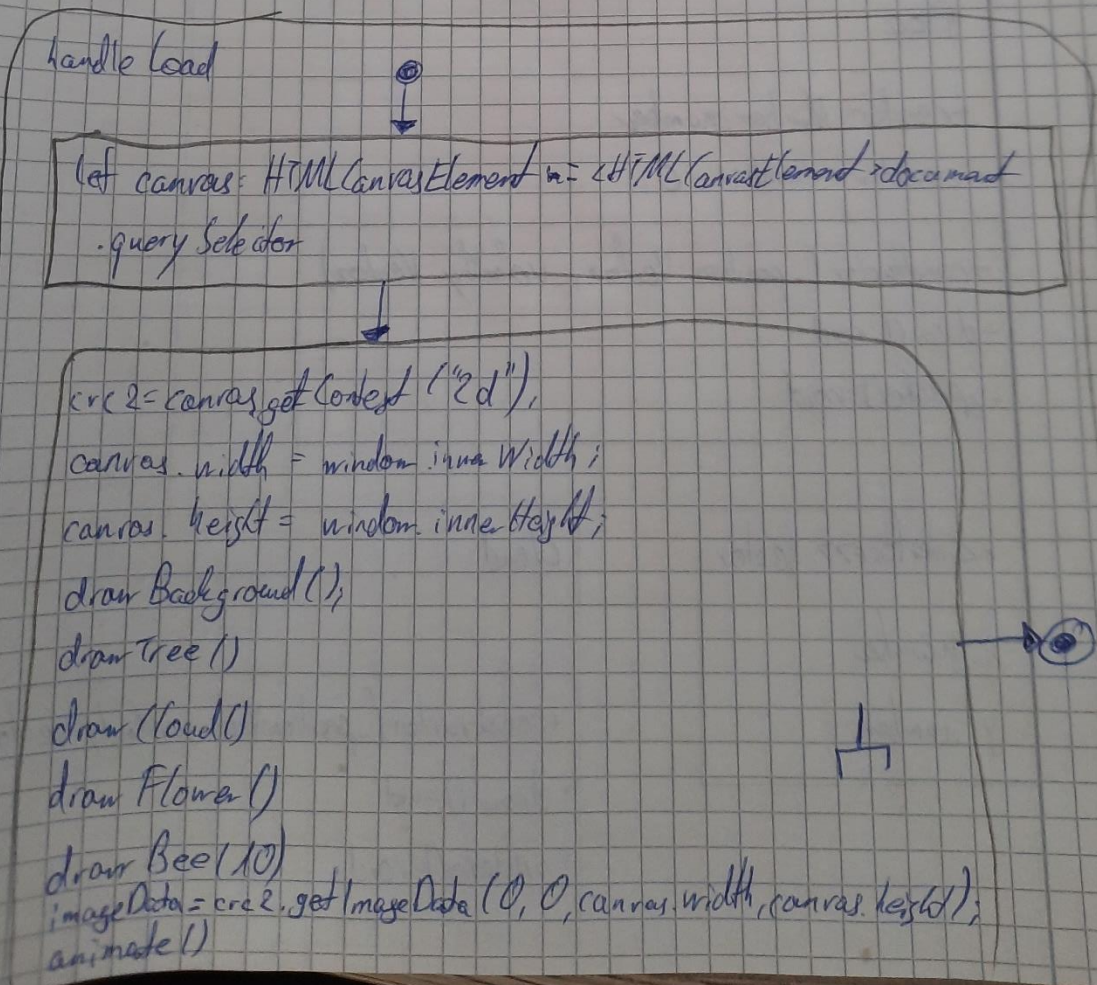 handle Load
let canvas: HTMLCanvasElement = <HTMLCanvasElement>document
.querySelector
crc2=canvas.getContext ("2d");
canvas.width = window.innerWidth;
canvas.height = window.innerHeight;
drawBackground();
drawTree()
drawCloud()
drawFlower()
drawBee(10)
imageData=crc2.getImageData(0,0,canvas.width,canvas.height);
animate()